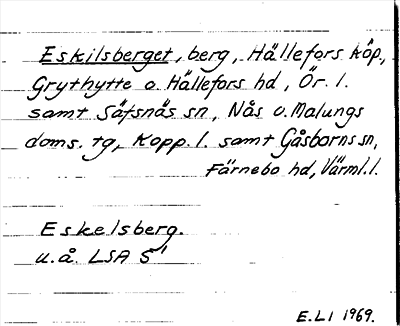 Eskilsberget, berg, Hällefors köp.,
Grythytte o. Hällefors hd, Ör. l.
samt Säfsnäs sn, Nås o. Malungs
doms. tg, Kopp. l. samt Gåsborns sn,
Färnebo hd, Värml. l.
Eskelsberg.
u.å. LSA S1
E.LI 1969.